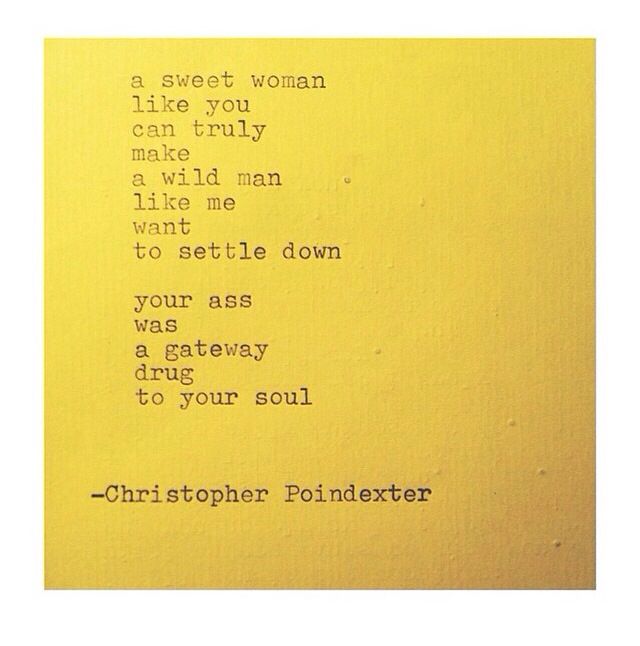 a sweet woman
like you
can truly
make
a wild man
like me
want
to settle down
your ass
was
a gateway
drug
to your soul
-Christopher Poindexter